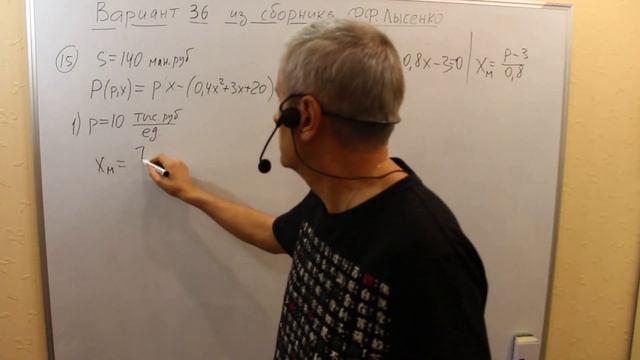 Вариант 36 из сборника Ф.Ф. Лысенко
15 S=140 млн.руб
P(p,x)=px-(0,4x²+3x+20)
0,8x-3=0 | xм=(p-3)/0,8
1) p=10 тыс.руб/ед
xм= 7